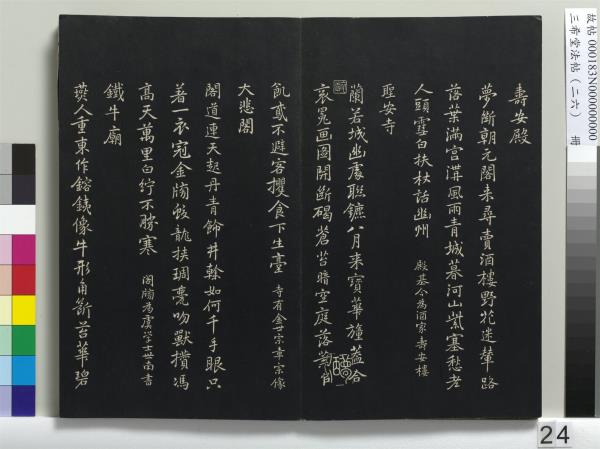 故帖 000183N000000000
三希堂法帖（二六） 冊
壽安殿
夢斷朝元閣來尋賣酒樓野花迷輦路
落葉滿宮溝風雨青城暮河山紫塞愁老
人頭雪白扶杖話幽州 殿基今為酒家壽安樓
聖安寺
蘭若城幽處聯鑣八月來寶華幢蓋合
袞冕畫圖開斷碣蒼苔暗空庭落葉堆
飢鳶不避客攫食下生臺 寺有金世宗章宗像
大悲閣
閣道連天起丹青飾井榦如何千手眼只
著一衣冠金牓蛟龍扶琱甍吻獸攢馮
高天萬里白紵不勝寒 閣牓為虞學士世南書
鐵牛廟
燕人重東作鎔銕像牛形角斷苔華碧
24